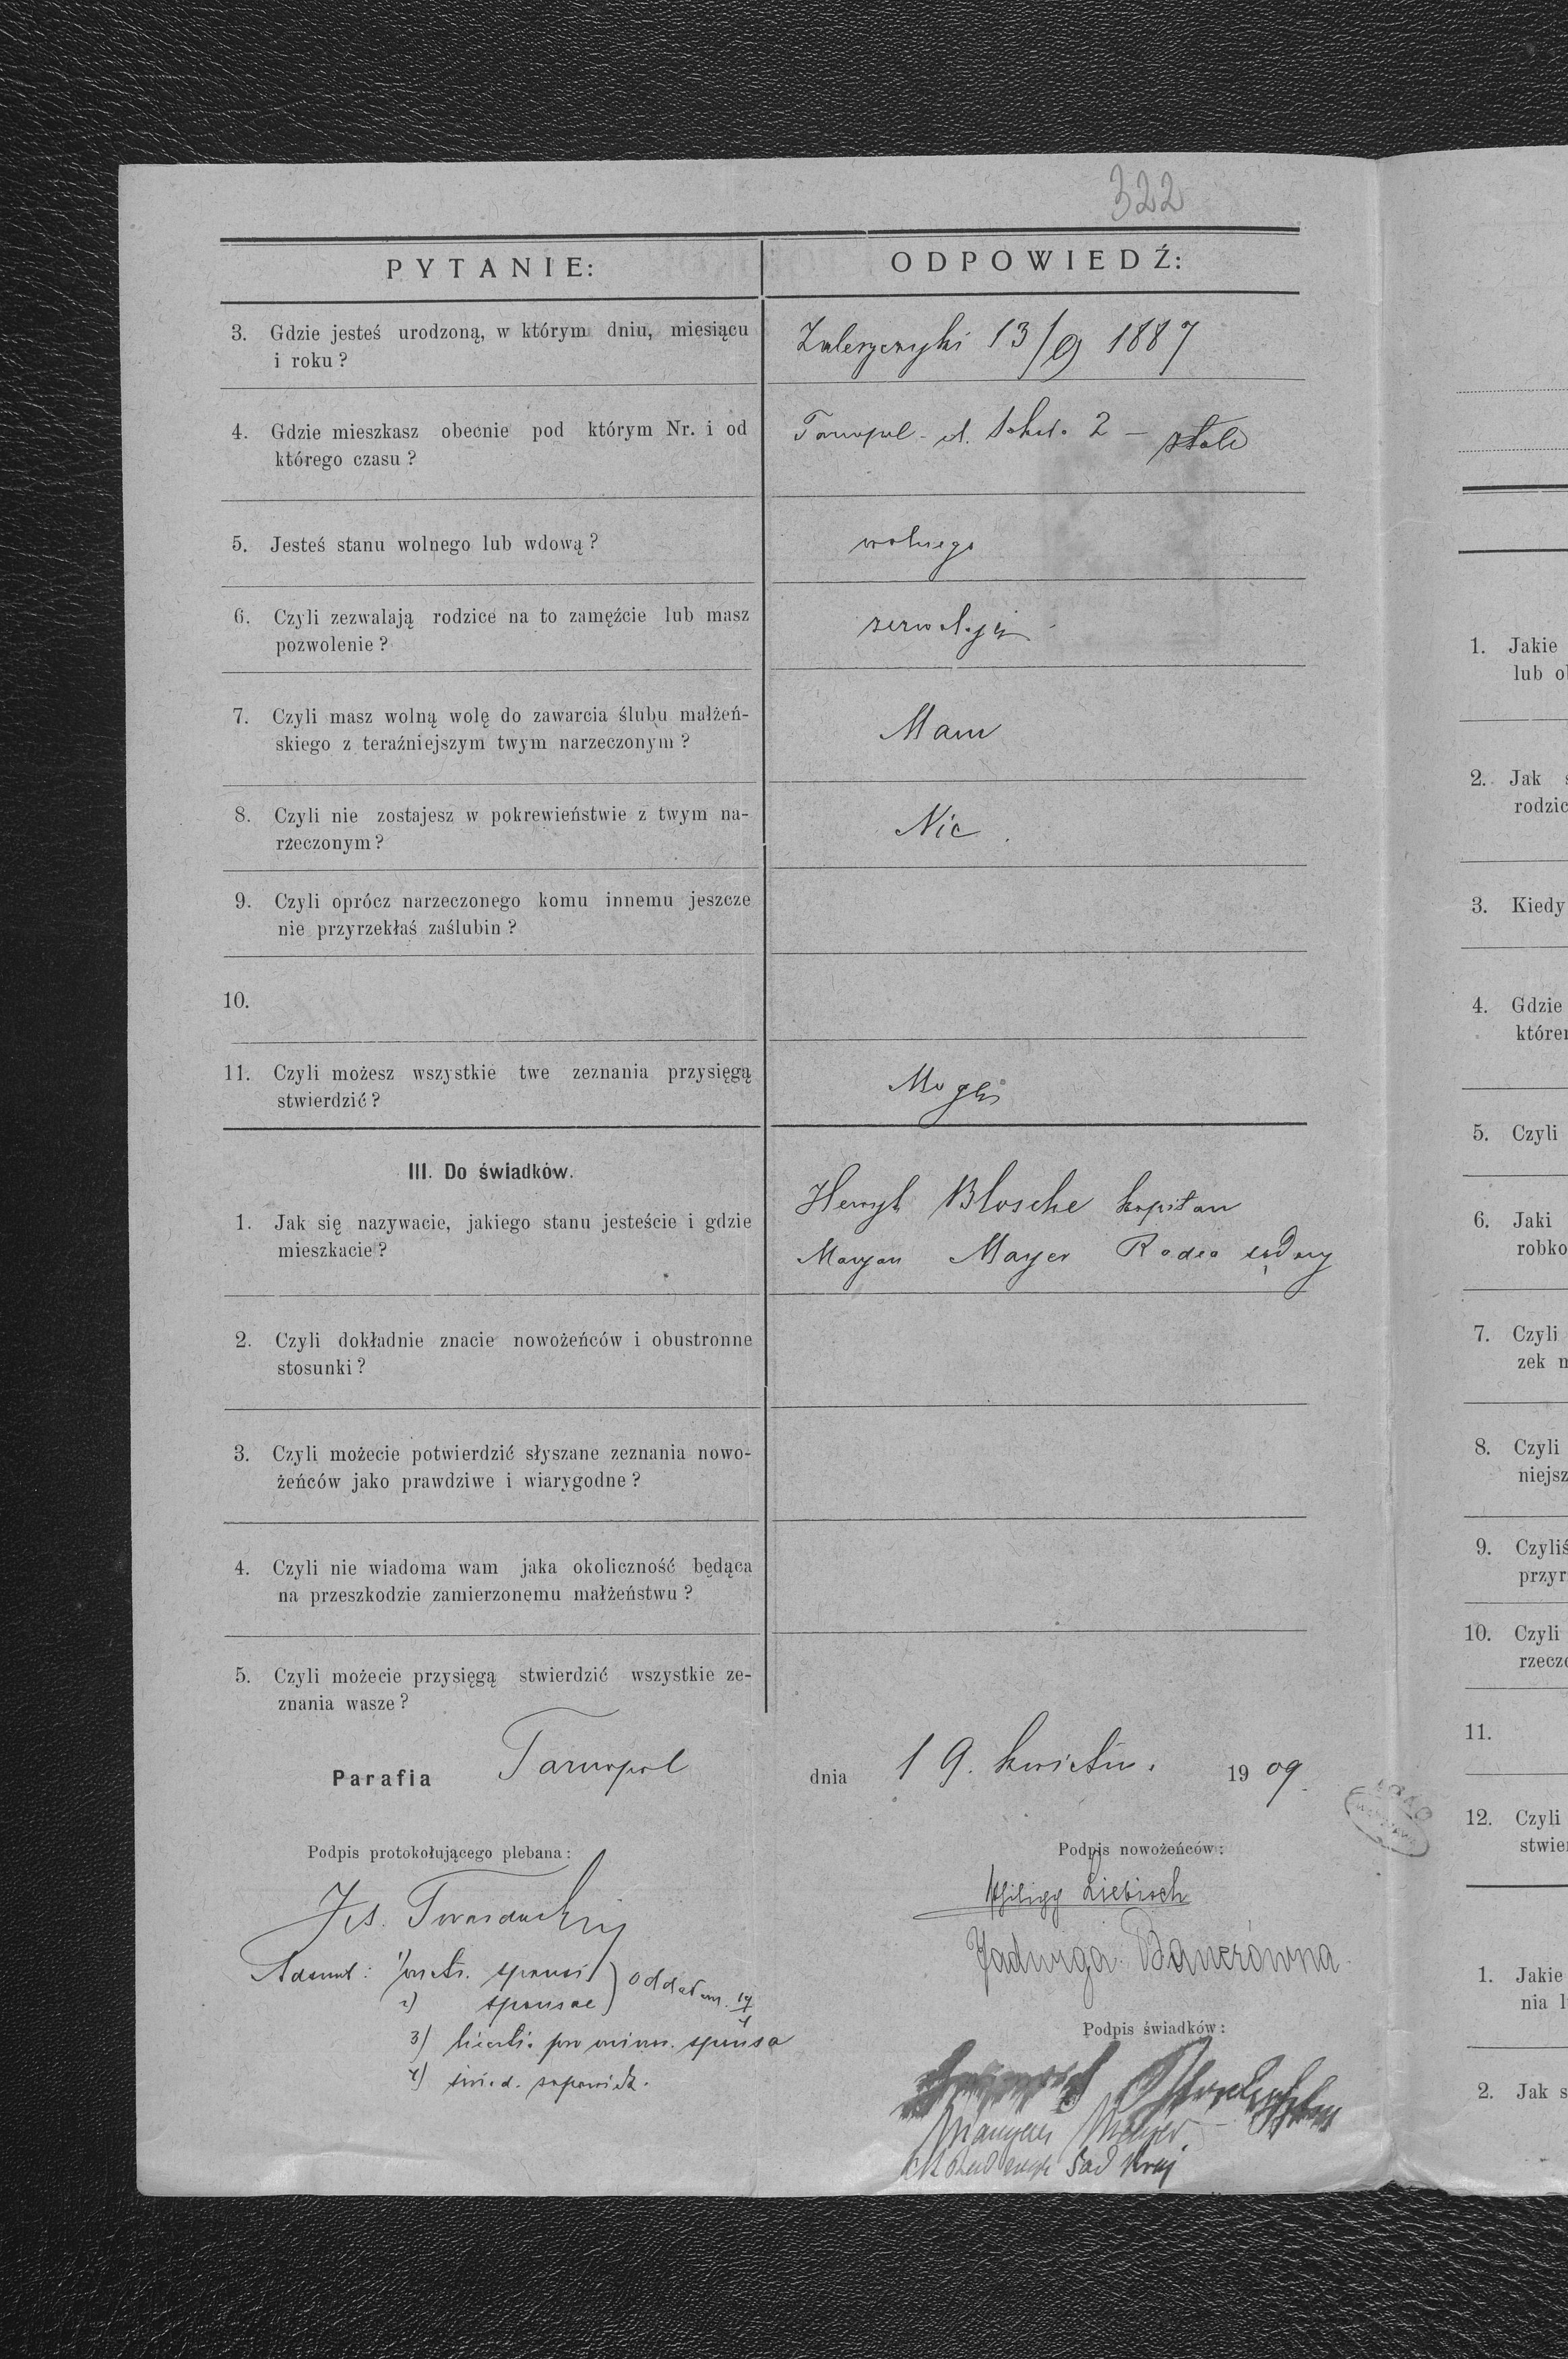 322
PYTANIE:
ODPOWIEDŹ:
3. Gdzie jesteś urodzoną, w którym dniu, miesiącu
i roku?
Zaleszczyki 13/9 1887
4. Gdzie mieszkasz obecnie pod którym Nr. i od
którego czasu?
Tarnopol 2 — stale
5. Jesteś stanu wolnego lub wdową?
wolnego
6. Czyli zezwalają rodzice na to zamęźcie lub masz
pozwolenie?
zezwalają
7. Czyli masz wolną wolę do zawarcia ślubu małżeń-
skiego z teraźniejszym twym narzeczonym?
Mam
8. Czyli nie zostajesz w pokrewieństwie z twym na-
rzeczonym?
Nie
9. Czyli oprócz narzeczonego komu innemu jeszcze
nie przyrzekłaś zaślubin?
10.
11. Czyli możesz wszystkie twe zeznania przysięgą
stwierdzić?
Mogę
III. Do świadków.
1. Jak się nazywacie, jakiego stanu jesteście i gdzie
mieszkacie?
Henryk Blosche kapitan
Maryan Mayer Radca sądowy
2. Czyli dokładnie znacie nowożeńców i obustronne
stosunki?
3. Czyli możecie potwierdzić słyszane zeznania nowo-
żeńców jako prawdziwe i wiarygodne?
4. Czyli nie wiadoma wam jaka okoliczność będąca
na przeszkodzie zamierzonemu małżeństwu?
5. Czyli możecie przysięgą stwierdzić wszystkie ze-
znania wasze?
Parafia Tarnopol dnia 19. kwietn. 1909
Podpis protokołującego plebana:
Podpis nowożeńców:
Twardochy
Philipp Liebisch
Jadwiga Bauerówna
Adsunt: 1) metr. sponsi
2) sponsae
oddałem
3) sponsa
4) świad. zapowiedz.
Podpis świadków:
Maryan Mayer
Jakie
lub
1.
2. Jak
rodzic
3. Kiedy
4. Gdzie
który
5. Czyli
6. Jaki
robko
7. Czyli
zek
8. Czyli
niejsz
9. Czyliś
przyr
10. Czyli
rzecz
11.
12. Czyli
stwie
1. Jakie
nia
2. Jak